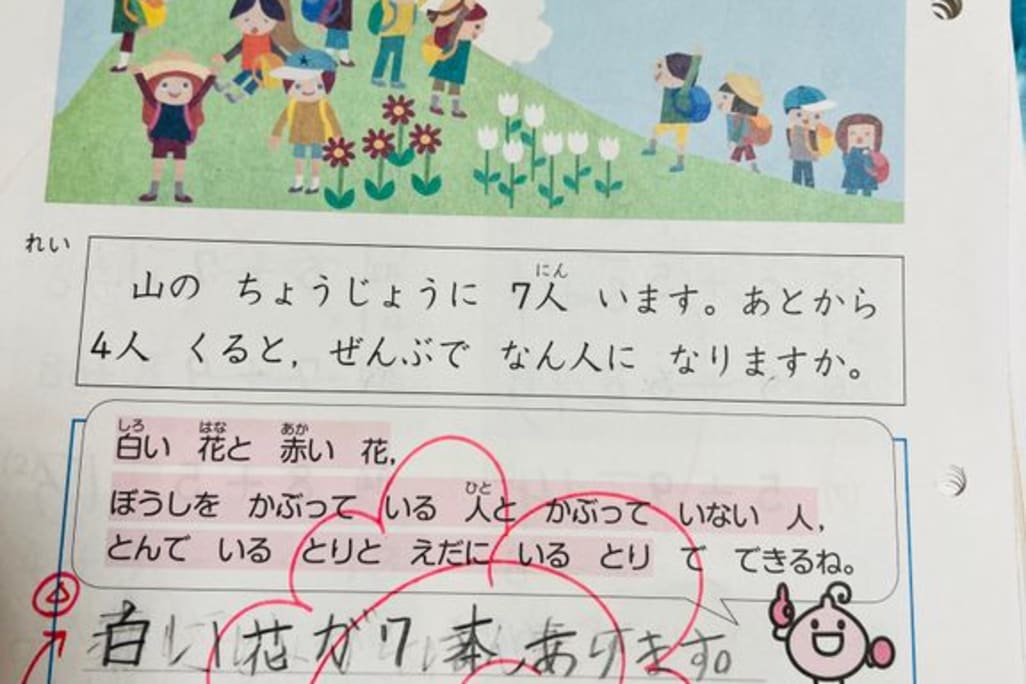 れい
山の ちょうじょうに 7人 います。あとから
にん
4人 くると, ぜんぶで なん人に なりますか。
しろ はな あか
白い 花と 赤い 花,
ひと
ぼうしを かぶって いる 人と かぶって いない 人,
とんで いる とりと えだに いる とり で できるね。
白い花が7本あります。